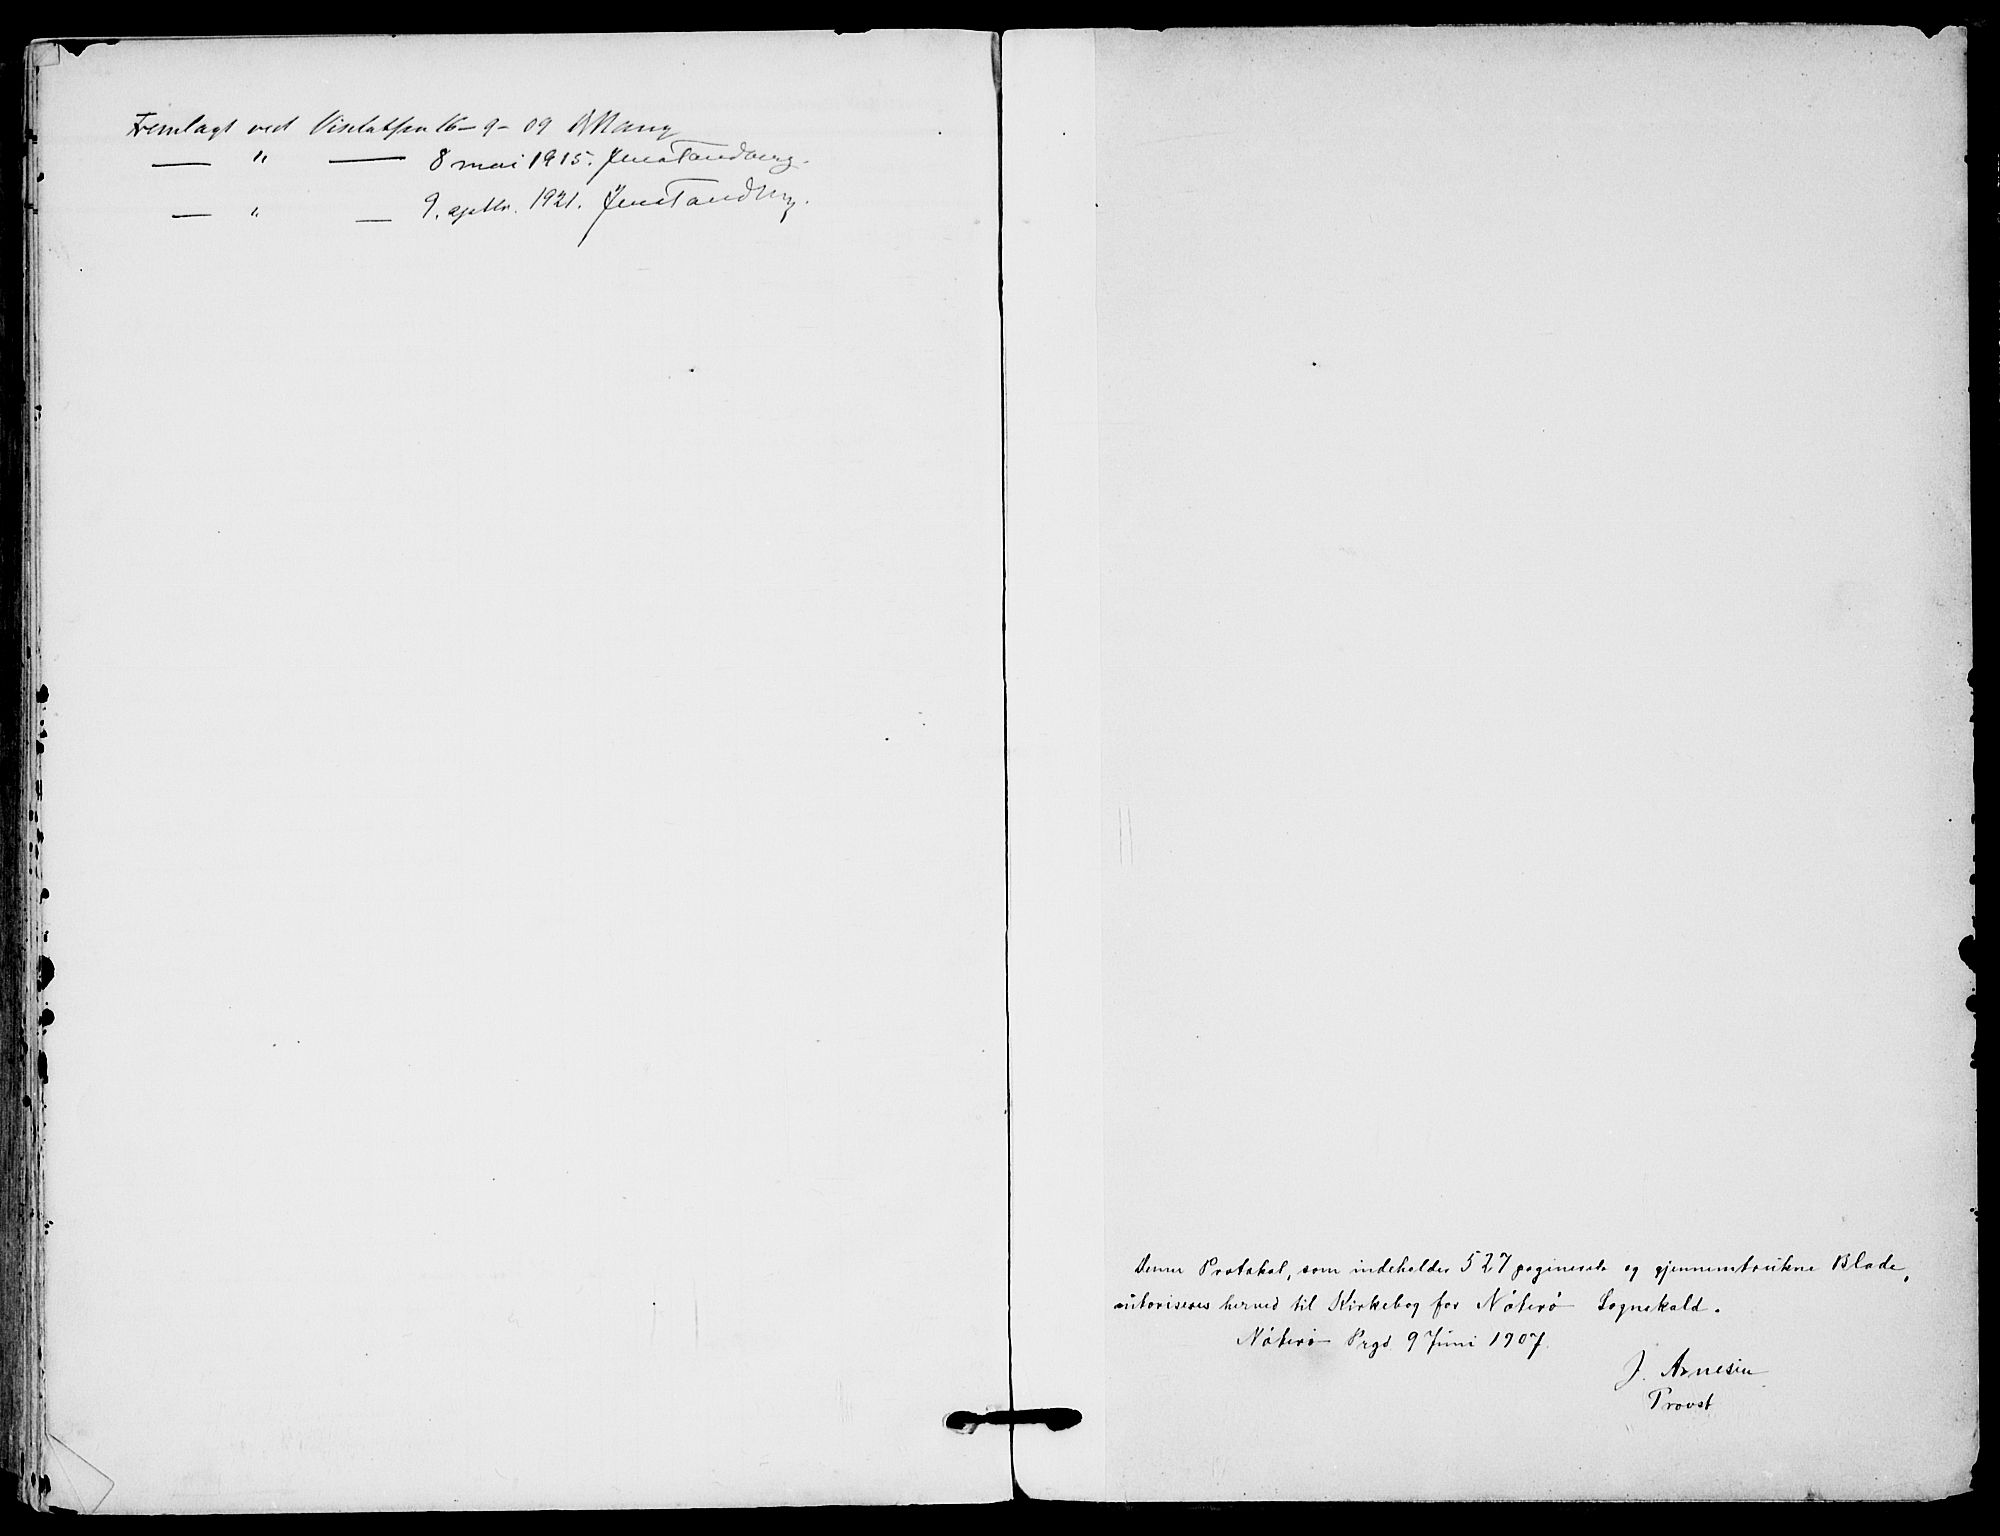 Fremlagt ved Visitatsen 16-9-09 A Bang
— " — 8 mai 1915. Jens Tandberg.
— " — 9. septbr. 1921. Jens Tandberg.
Denne Protokol, som indeholder 527 paginerede og gjennemtrukne Blade,
autoriseres herved til Kirkebog for Nøterø Sognekald.
Nøterø Prgd. 9 Juni 1907.
J. Arnesen
Provst